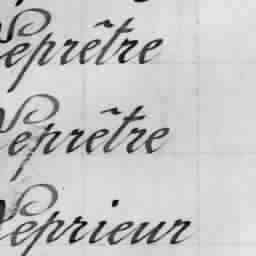 Leprêtre
Leprêtre
Leprieur